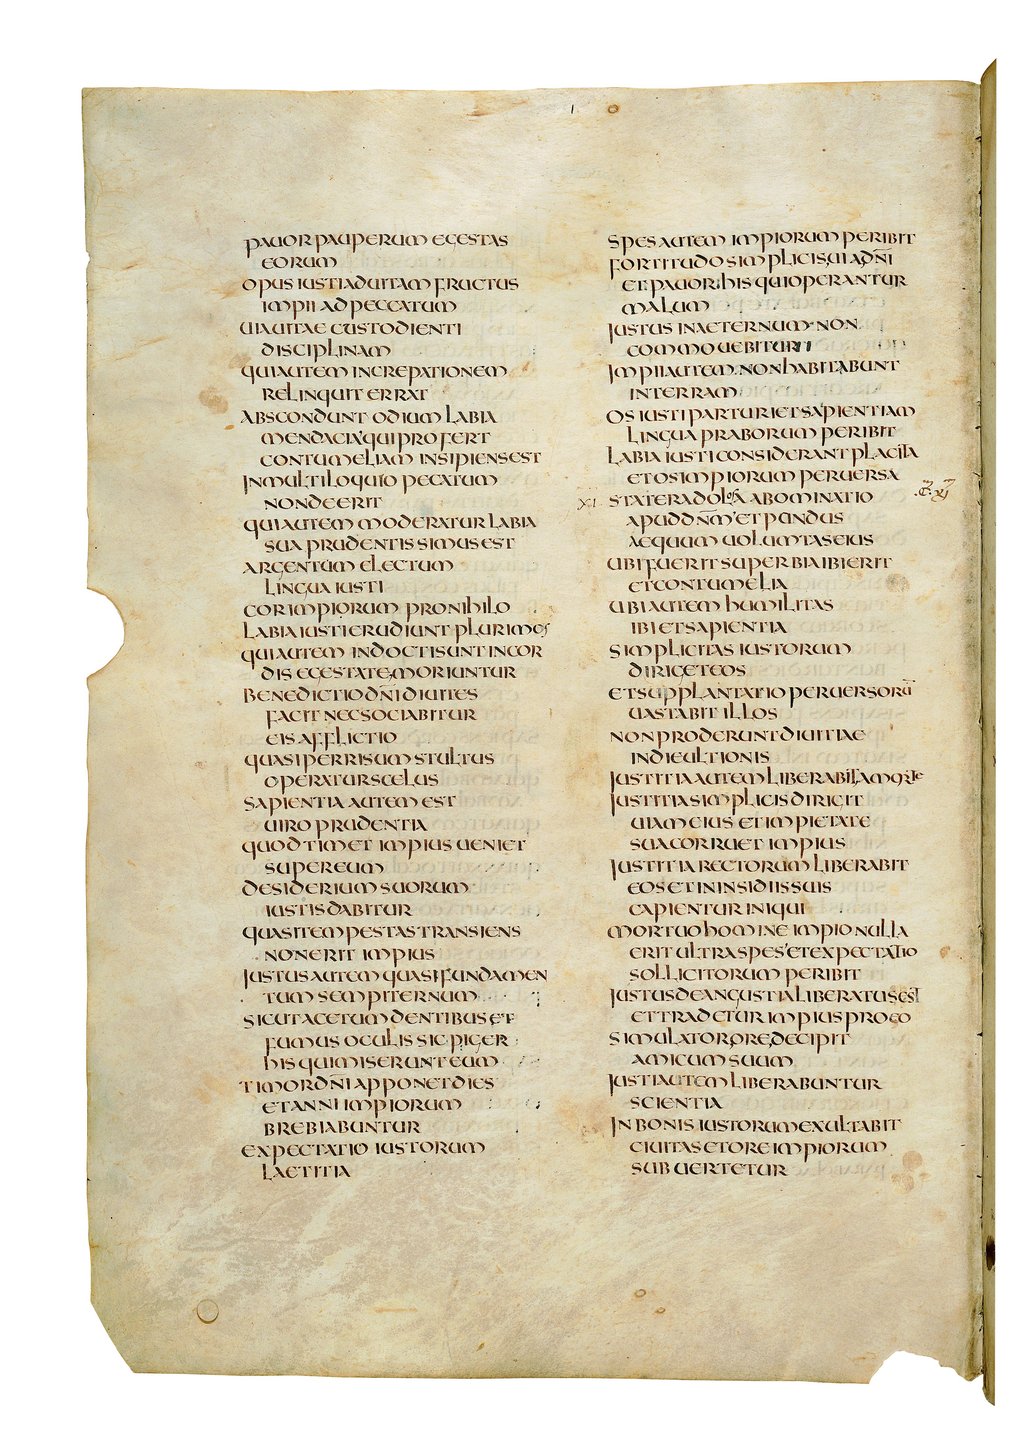 PAUOR PAUPERUM EGESTAS
EORUM
OPUS IUSTI AD UITAM FRUCTUS
IMPII AD PECCATUM
UIA UITAE CUSTODIENTI
DISCIPLINAM
QUI AUTEM INCREPATIONEM
RELINQUIT ERRAT
ABSCONDUNT ODIUM LABIA
MENDACIA QUI PROFERT
CONTUMELIAM INSIPIENS EST
IN MULTILOQUIO PECATUM
NON DEERIT
QUI AUTEM MODERATUR LABIA
SUA PRUDENTISSIMUS EST
ARGENTUM ELECTUM
LINGUA IUSTI
COR IMPIORUM PRO NIHILO
LABIA IUSTI ERUDIUNT PLURIMOS
QUI AUTEM INDOCTI SUNT IN COR
DIS EGESTATE MORIUNTUR
BENEDICTIO DN̄I DIUITES
FACIT NEC SOCIABITUR
EIS AFFLICTIO
QUASI PER RISUM STULTUS
OPERATUR SCELUS
SAPIENTIA AUTEM EST
UIRO PRUDENTIA
QUOD TIMET IMPIUS UENIET
SUPER EUM
DESIDERIUM SUORUM
IUSTIS DABITUR
QUASI TEMPESTAS TRANSIENS
NON ERIT IMPIUS
IUSTUS AUTEM QUASI FUNDAMEN
TUM SEMPITERNUM
SICUT ACETUM DENTIBUS ET
FUMUS OCULIS SIC PIGER
HIS QUI MISERUNT EUM
TIMOR DN̄I APPONET DIES
ET ANNI IMPIORUM
BREBIABUNTUR
EXPECTATIO IUSTORUM
LAETITIA
SPES AUTEM IMPIORUM PERIBIT
FORTITUDO SIMPLICIS UIA DN̄I
ET PAUOR HIS QUI OPERANTUR
MALUM
IUSTUS IN AETERNUM NON
COMMOUEBITUR
IMPII AUTEM NON HABITABUNT
IN TERRAM
OS IUSTI PARTURIET SAPIENTIAM
LINGUA PRABORUM PERIBIT
LABIA IUSTI CONSIDERANT PLACITA
ET OS IMPIORUM PERUERSA
XI STATERA DOLOSA ABOMINATIO
APUD DN̄M ET PONDUS
AEQUUM UOLUMTAS EIUS
UBI FUERIT SUPERBIA IBI ERIT
ET CONTUMELIA
UBI AUTEM HUMILITAS
IBI ET SAPIENTIA
SIMPLICITAS IUSTORUM
DIRIGET EOS
ET SUPPLANTATIO PERUERSORŪ
UASTABIT ILLOS
NON PRODERUNT DIUITIAE
IN DIE ULTIONIS
IUSTITIA AUTEM LIBERABIT A MORTE
IUSTITIA SIMPLICIS DIRIGIT
UIAM EIUS ET IMPIETATE
SUA CORRUET IMPIUS
IUSTITIA RECTORUM LIBERABIT
EOS ET IN INSIDIIS SUIS
CAPIENTUR INIQUI
MORTUO HOMINE IMPIO NULLA
ERIT ULTRA SPES ET EXPECTATIO
SOLLICITORUM PERIBIT
IUSTUS DE ANGUSTIA LIBERATUS EST
ET TRADETUR IMPIUS PRO EO
SIMULATOR ORE DECIPIT
AMICUM SUUM
IUSTI AUTEM LIBERABUNTUR
SCIENTIA
IN BONIS IUSTORUM EXULTABIT
CIUITAS ET ORE IMPIORUM
SUBUERTETUR